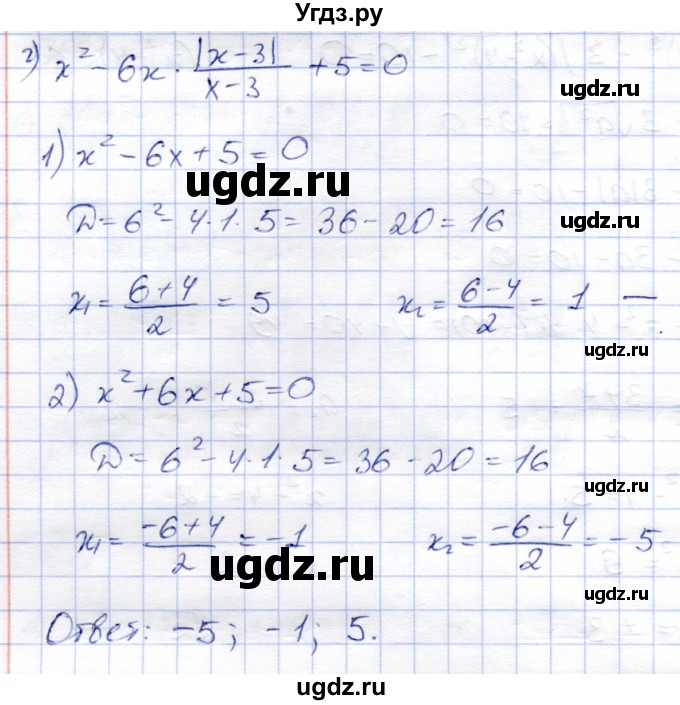 Угдз.ру
г) x² - 6x · |x-3|/(x-3) + 5 = 0
ugdz.ru
1) x² - 6x + 5 = 0
ugdz.ru
Д = 6² - 4·1·5 = 36 - 20 = 16
ugdz.ru
x₁ = (6+4)/2 = 5    x₂ = (6-4)/2 = 1 —.
ugdz.ru
2) x² + 6x + 5 = 0
Д = 6² - 4·1·5 = 36 - 20 = 16
ugdz.ru
x₁ = (-6+4)/2 = -1    x₂ = (-6-4)/2 = -5
ugdz.ru
ugdz.ru
Ответ: -5; -1; 5.
ugdz.ru
ugdz.ru